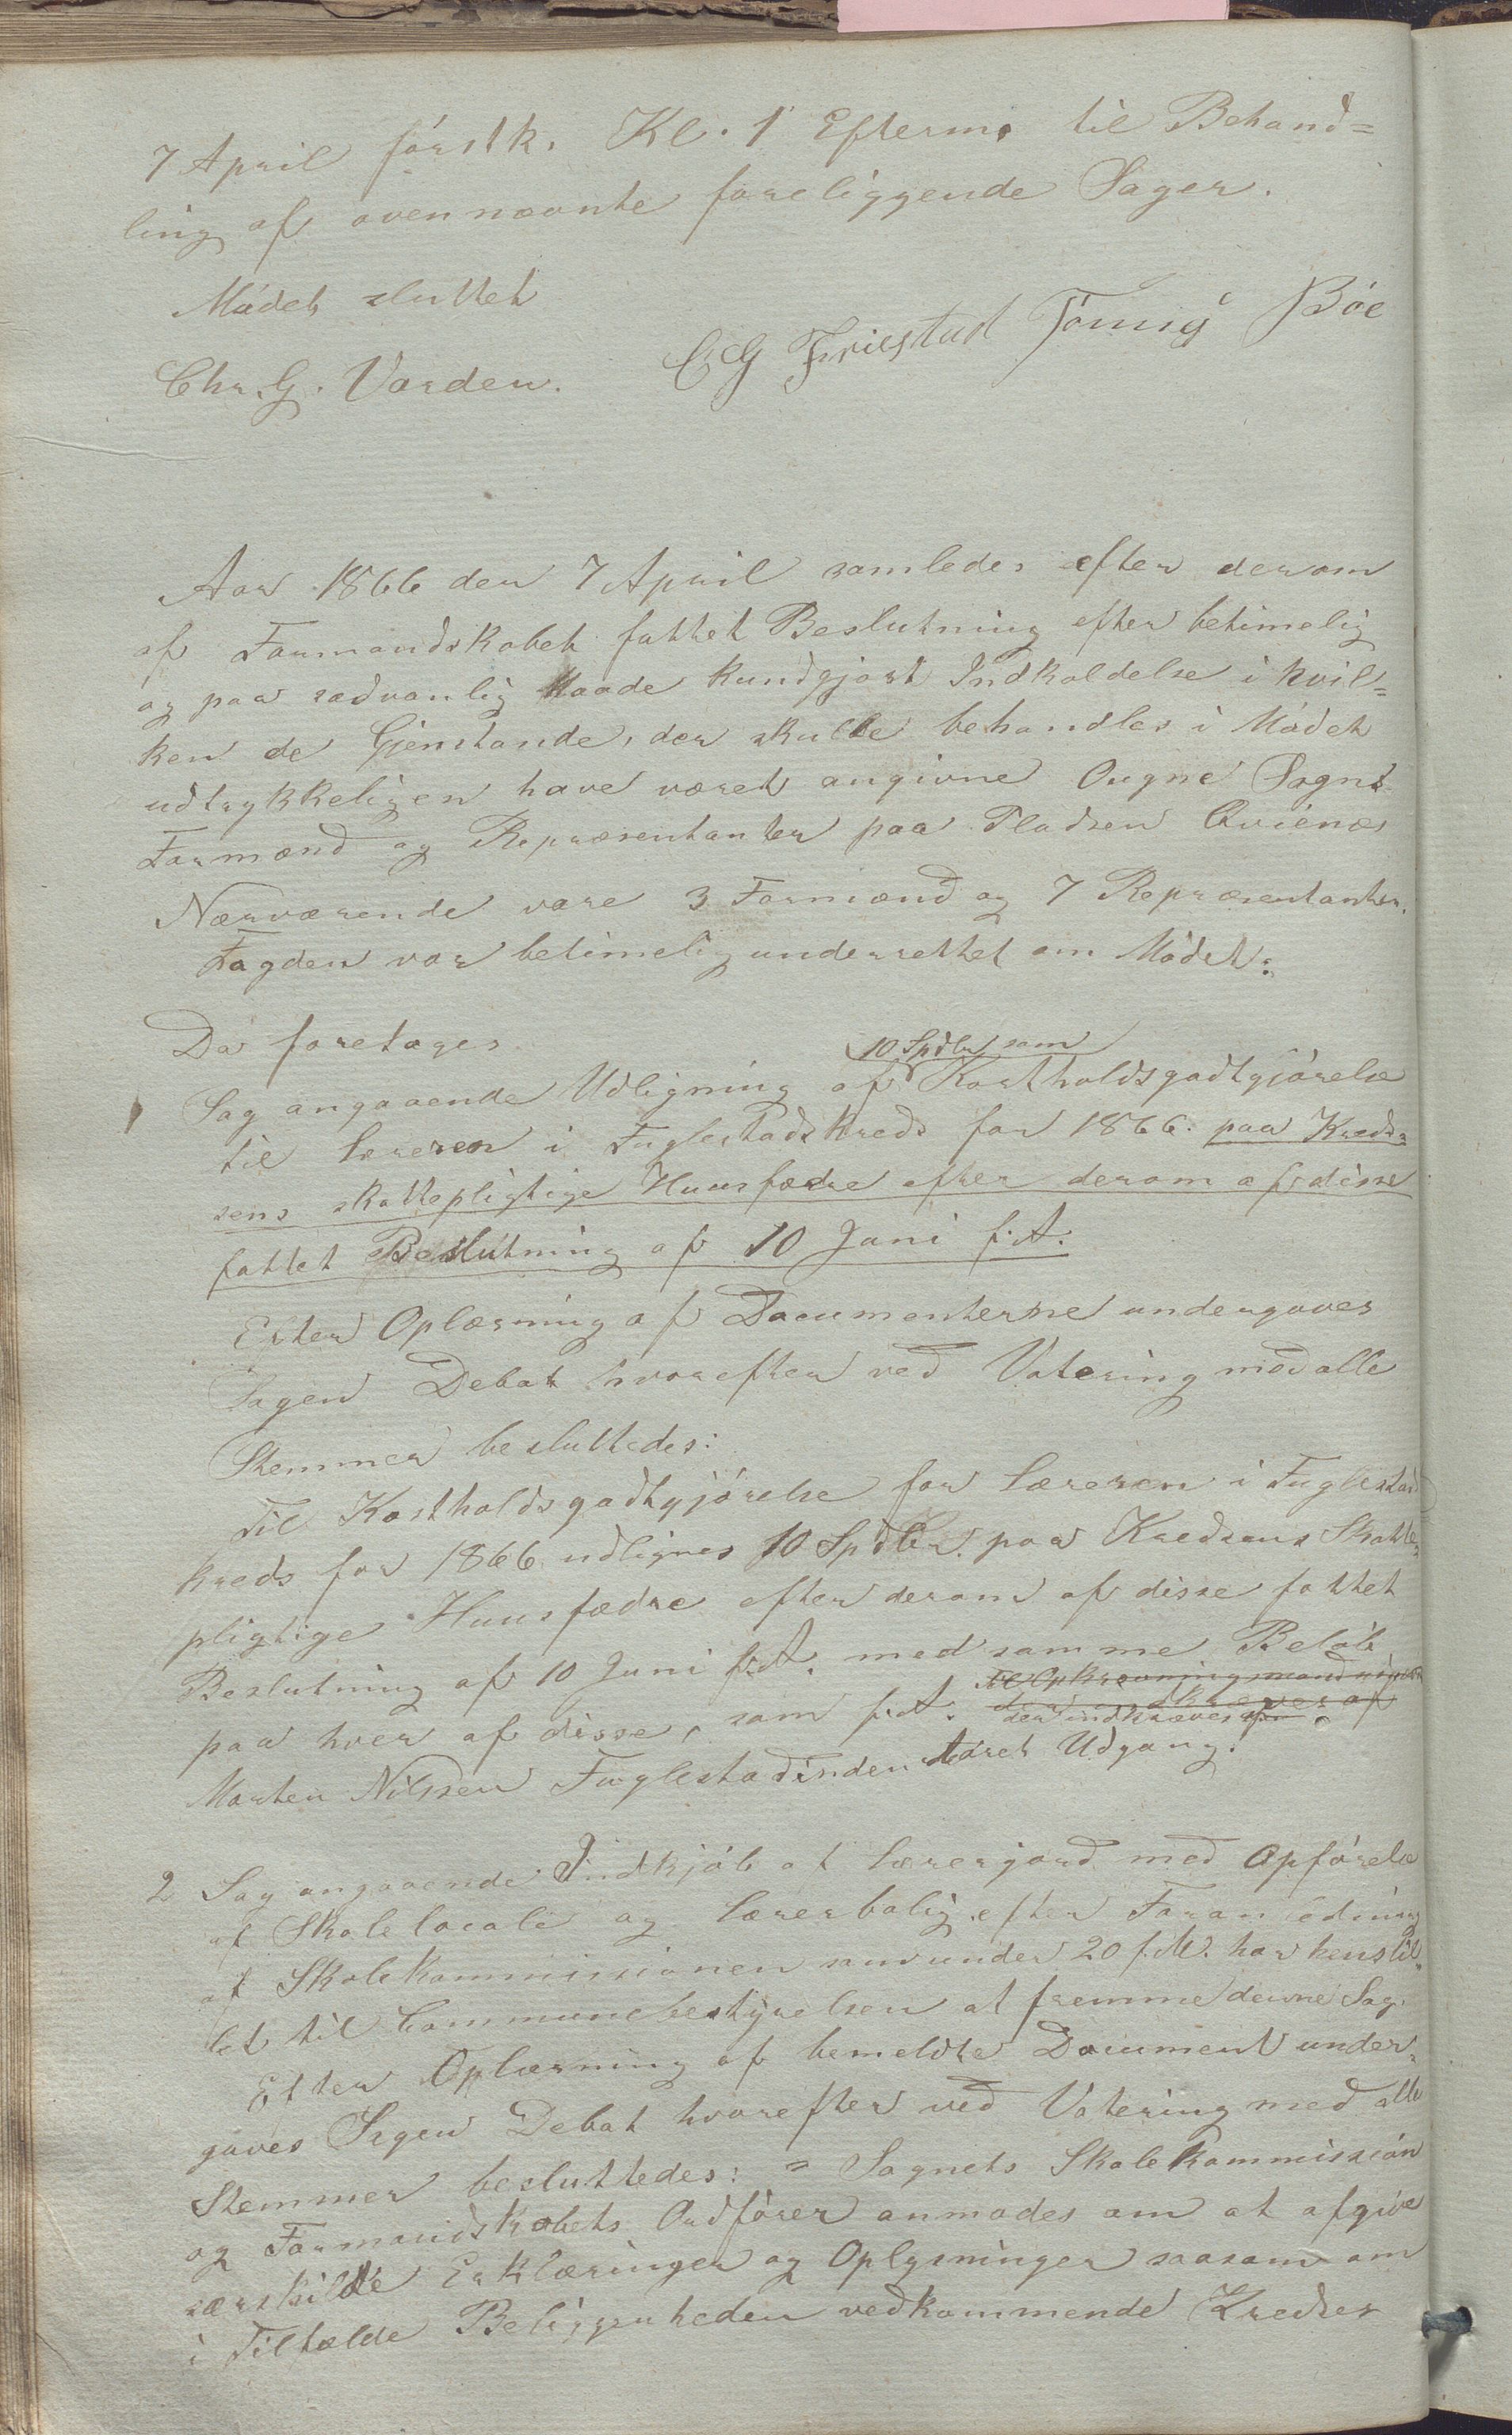 7 April förstk. Kl. 1 Efterm. til Behand=
ling af ovennævnte foreliggende Sager.
Mödet sluttet
Chr. G. Varden. C G Friestad Tönnis Böe
Aar 1866 den 7 April samledes efter derom
af Formandskabet fattet Beslutning efter betimelig
og paa sædvanlig Maade kundgjort Indkaldelse i hvil=
ken de Gjenstande, der skulle behandles i Mödet
udtrykkeligen have været angivne Ougne Sogns
Formænd og Repræsentanter paa Pladsen Qvienæs
Nærværende vare 3 Formænd og 7 Repræsentanter.
Fogden var betimelig underrettet om Mödet:
Da foretoges
10 Spdlr som
Sag angaaende Udligning af Kostholdsgodtgjörelse
til læreren i Fuglestadskreds for 1866. paa Kred=
sens skattepligtige Huusfædre efter derom af disse
fattet Beslutning af 10 Juni f.A.
Efter Oplæsning af Documenterne undergaves
Sagen Debat hvorefter ved Votering med alle
Stemmer besluttedes:
Til Kostholdsgodtgjörelse for læreren i Fuglestad
kreds for 1866 udlignes 10 Spdlr. paa Kredsens Skatte=
pligtige Huusfædre efter derom af disse fattet
Beslutning af 10 Juni f.A. med samme Belöb
paa hver af disse, som f.A. der indkræves af
Morten Nilssen Fuglestad inden Aaret Udgang.
2 Sag angaaende Indkjöb af lærerjord med Opförelse
af Skolelocale og lærerbolig efter Foranledning
af Skolekommissionen som under 20 f.M. har henstil=
let til Communebestyrelsen at fremme denne Sag.
Efter Oplæsning af bemeldte Document under=
gaves Sagen Debat hvorefter ved Votering med alle
Stemmer besluttedes: = Sognets Skolekommission
og Formandskabets Ordförer anmodes om at afgive
særskilde Erklæringer og Oplysninger saasom om
i Tilfælde Beliggenheden vedkommende Kredser